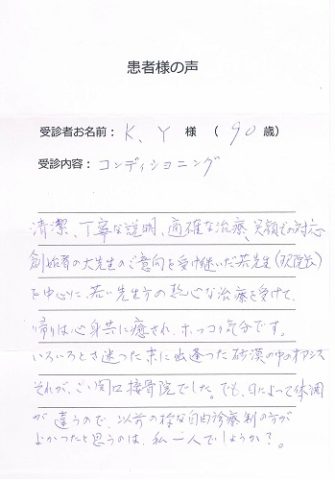 患者様の声
受診者お名前： K、Y 様 （ 90 歳）
受診内容：コンディショニング
清潔、丁寧な説明、適確な治療、笑顔での対応
創始者の大先生のご意向を受け継いだ若先生(現院長)
を中心に、若い先生方の熱心な治療を受けて、
帰りは心身共に癒され、ホッコリ気分です。
いろいろとさ迷った末に出逢った砂漠の中のオアシス
それが、ごい関口接骨院でした。でも、日によって体調
が違うので、以前の様な自由診療制の方が
よかったと思うのは、私一人でしょうか？。